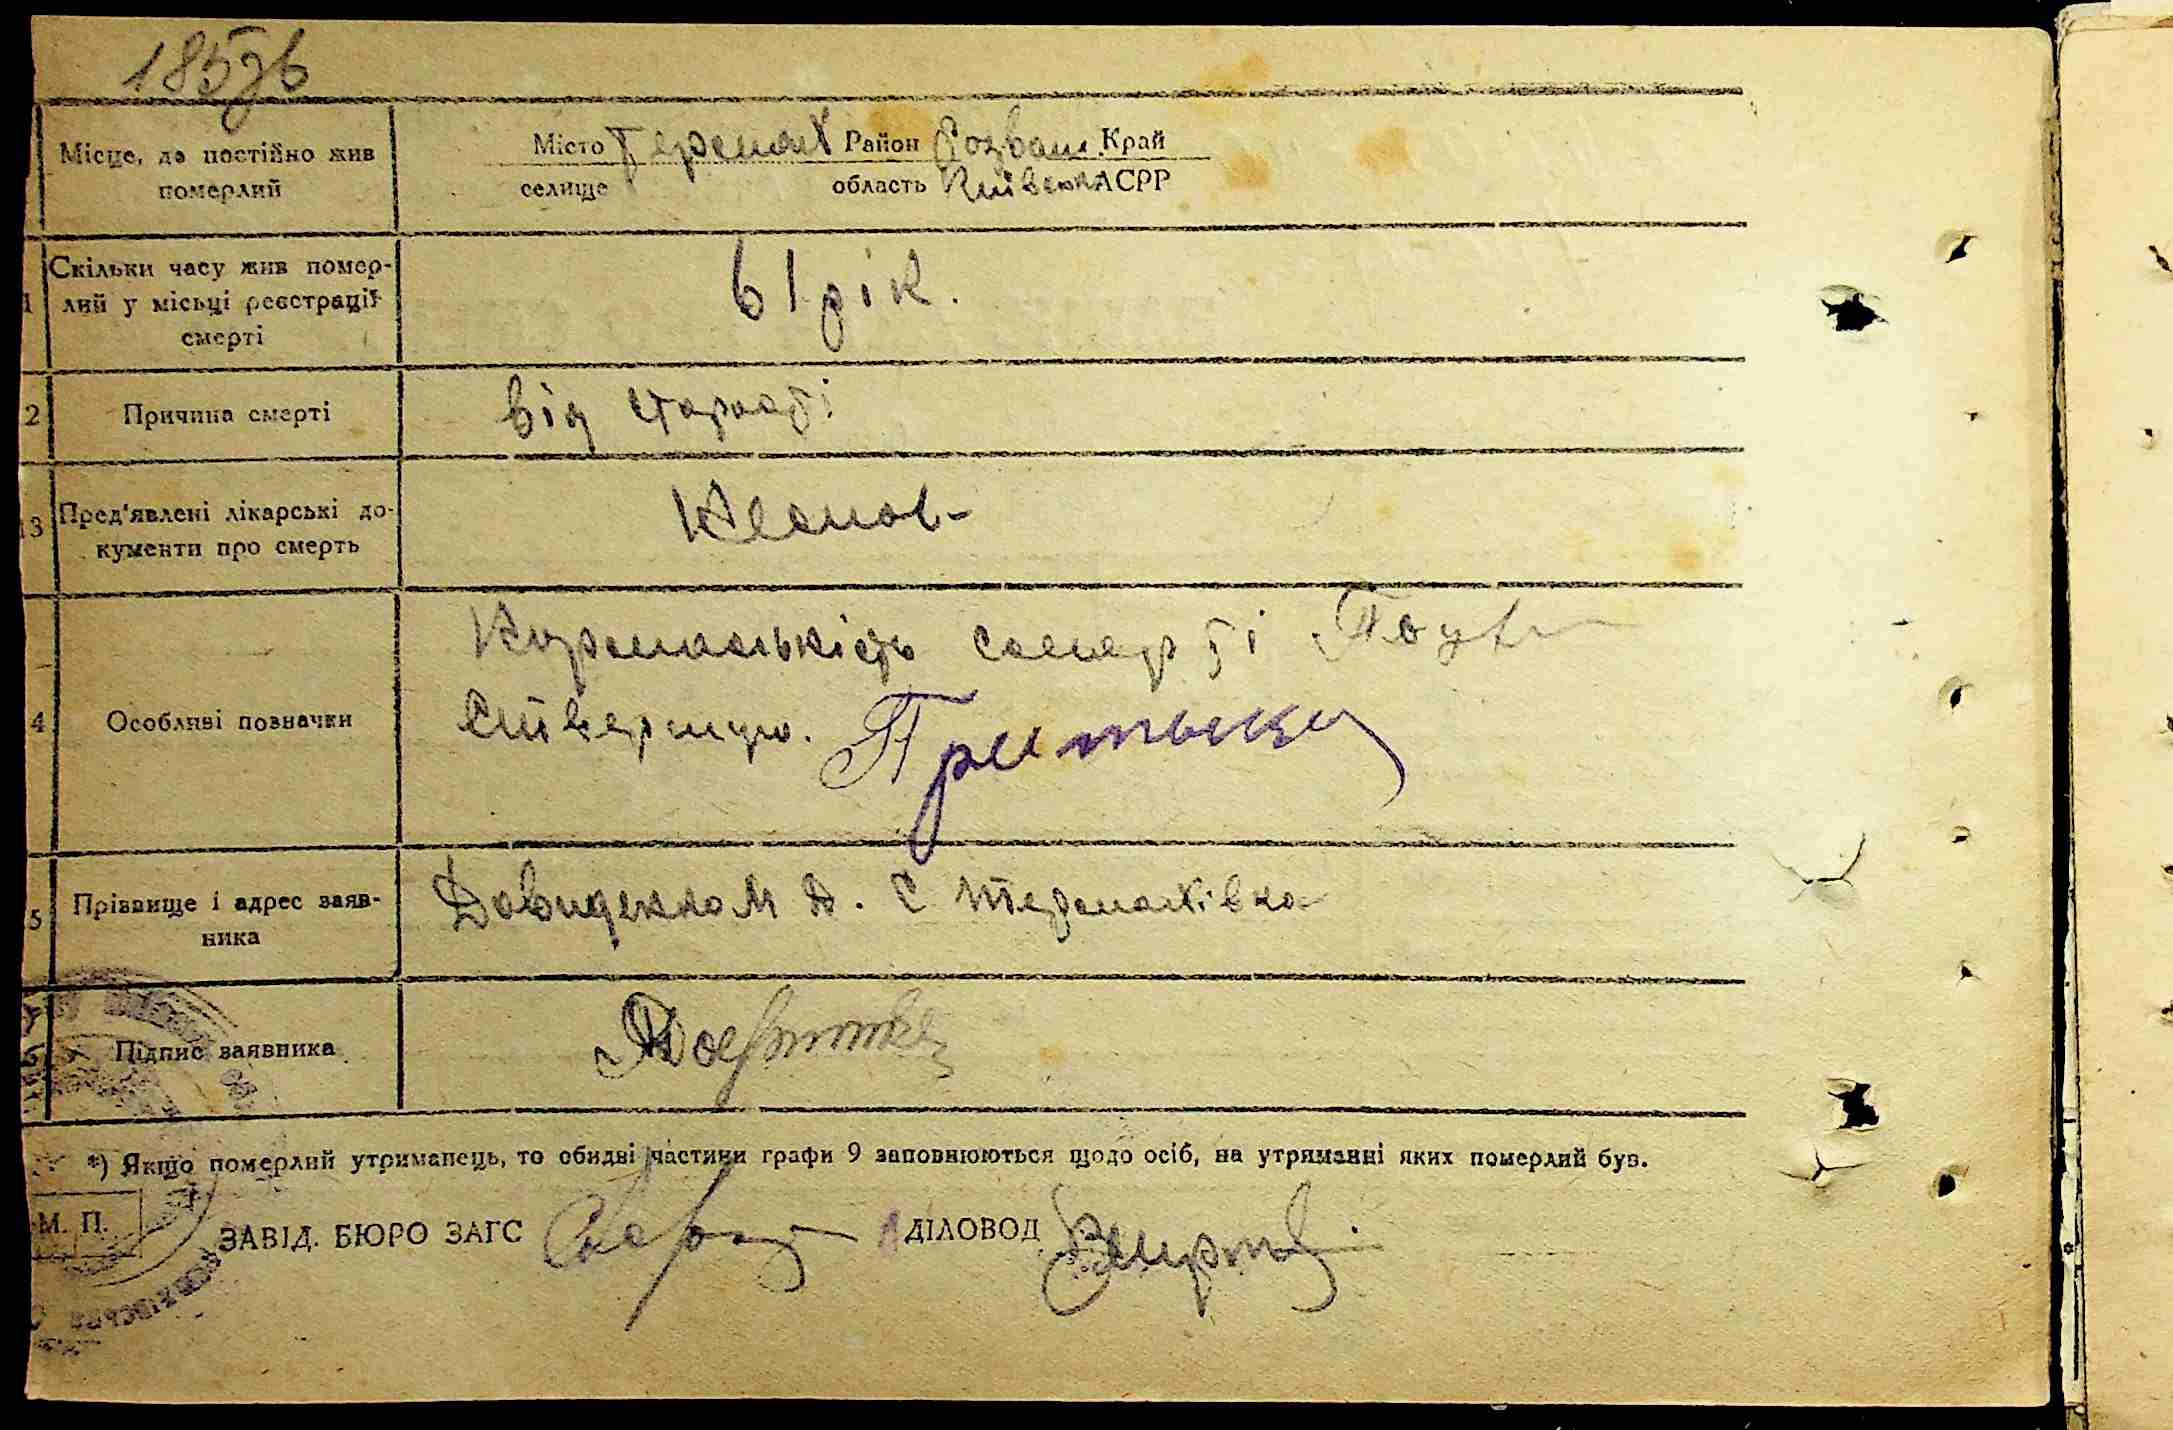 185зв
Місце, де постійно жив
померлий
Місто Термах Район Розваж. Край
селище область Київська АСРР
1 Скільки часу жив помер-
лий у місьці реєстрації
смерті
61 рік.
2 Причина смерті
від старості
13 Пред'явлені лікарські до-
кументи про смерть
Немає
4 Особливі позначки
Нормальність смерті
Ствержую. Притыка
5 Прізвище і адрес заяв-
ника
Давиденко М Д. С Термахівка
Підпис заявника
*) Якщо померлий утриманець, то обидві частини графи 9 заповнюються щодо осіб, на утриманні яких померлий був.
М. П.
ЗАВІД. БЮРО ЗАГС ДІЛОВОД